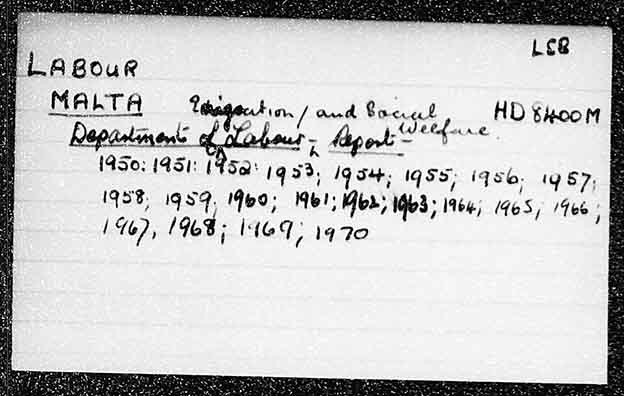 LSB
LABOUR
MALTA Emigration / and Social HD 8400M
Welfare
Department of Labour - Report -
1950: 1951: 1952: 1953; 1954; 1955; 1956; 1957;
1958; 1959; 1960; 1961; 1962; 1963; 1964; 1965; 1966;
1967, 1968; 1969; 1970